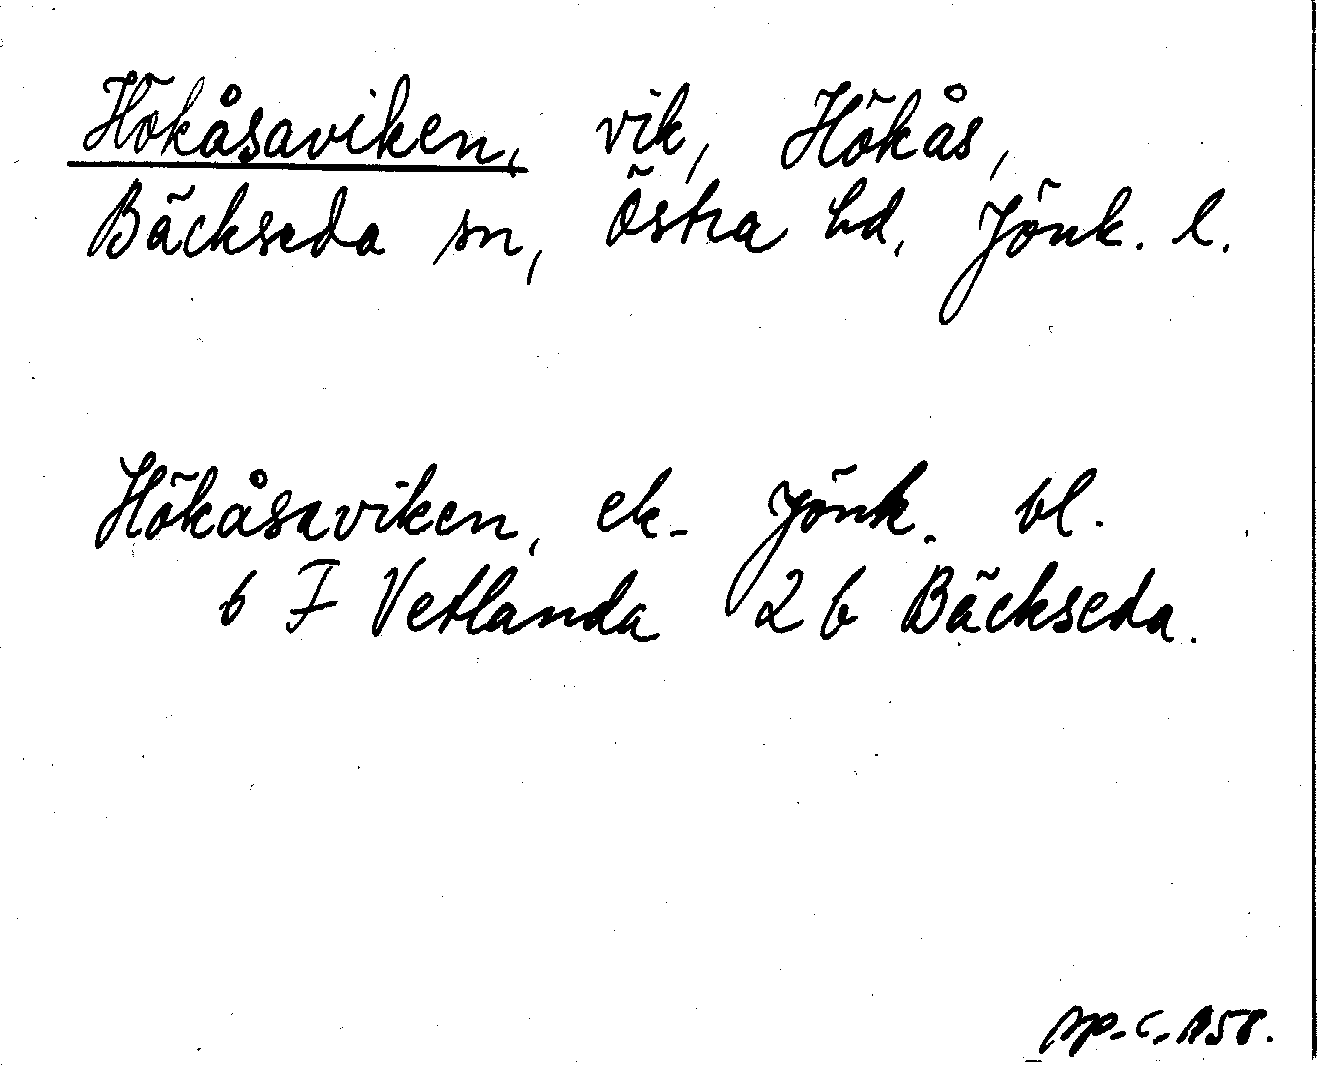 Hökåsaviken, vik, Hökås,
Bäckseda sn, Östra hd, Jönk. l.
Hökåsaviken, ek. Jönk. bl.
6 F Vetlanda 2 b Bäckseda.